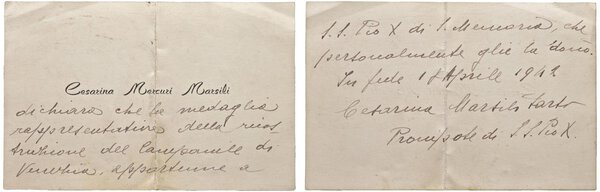 Cesarina Mercuri Marsili
dichiara che la medaglia
rappresentativa della ricos
truzione del Campanile di
Venezia, appartenne a
S.S. Pio X di S. Memoria, che
personalmente glie la donò.
In fede 18 Aprile 1942
Cesarina Marsili Sarto
Pronipote di S.S. Pio X.